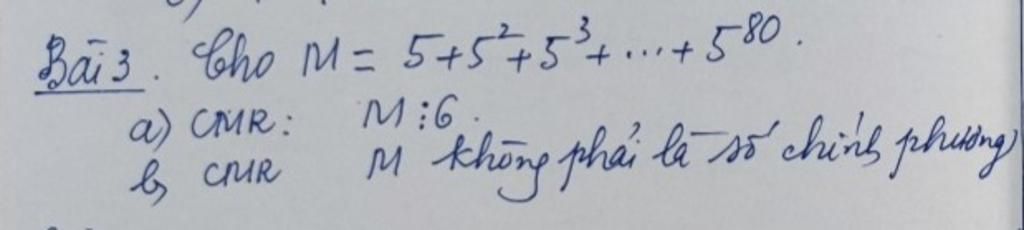 Bài 3. Cho M = 5+5²+5³+...+5⁸⁰.
a) CMR: M ⋮ 6.
b, CMR M không phải là số chính phương